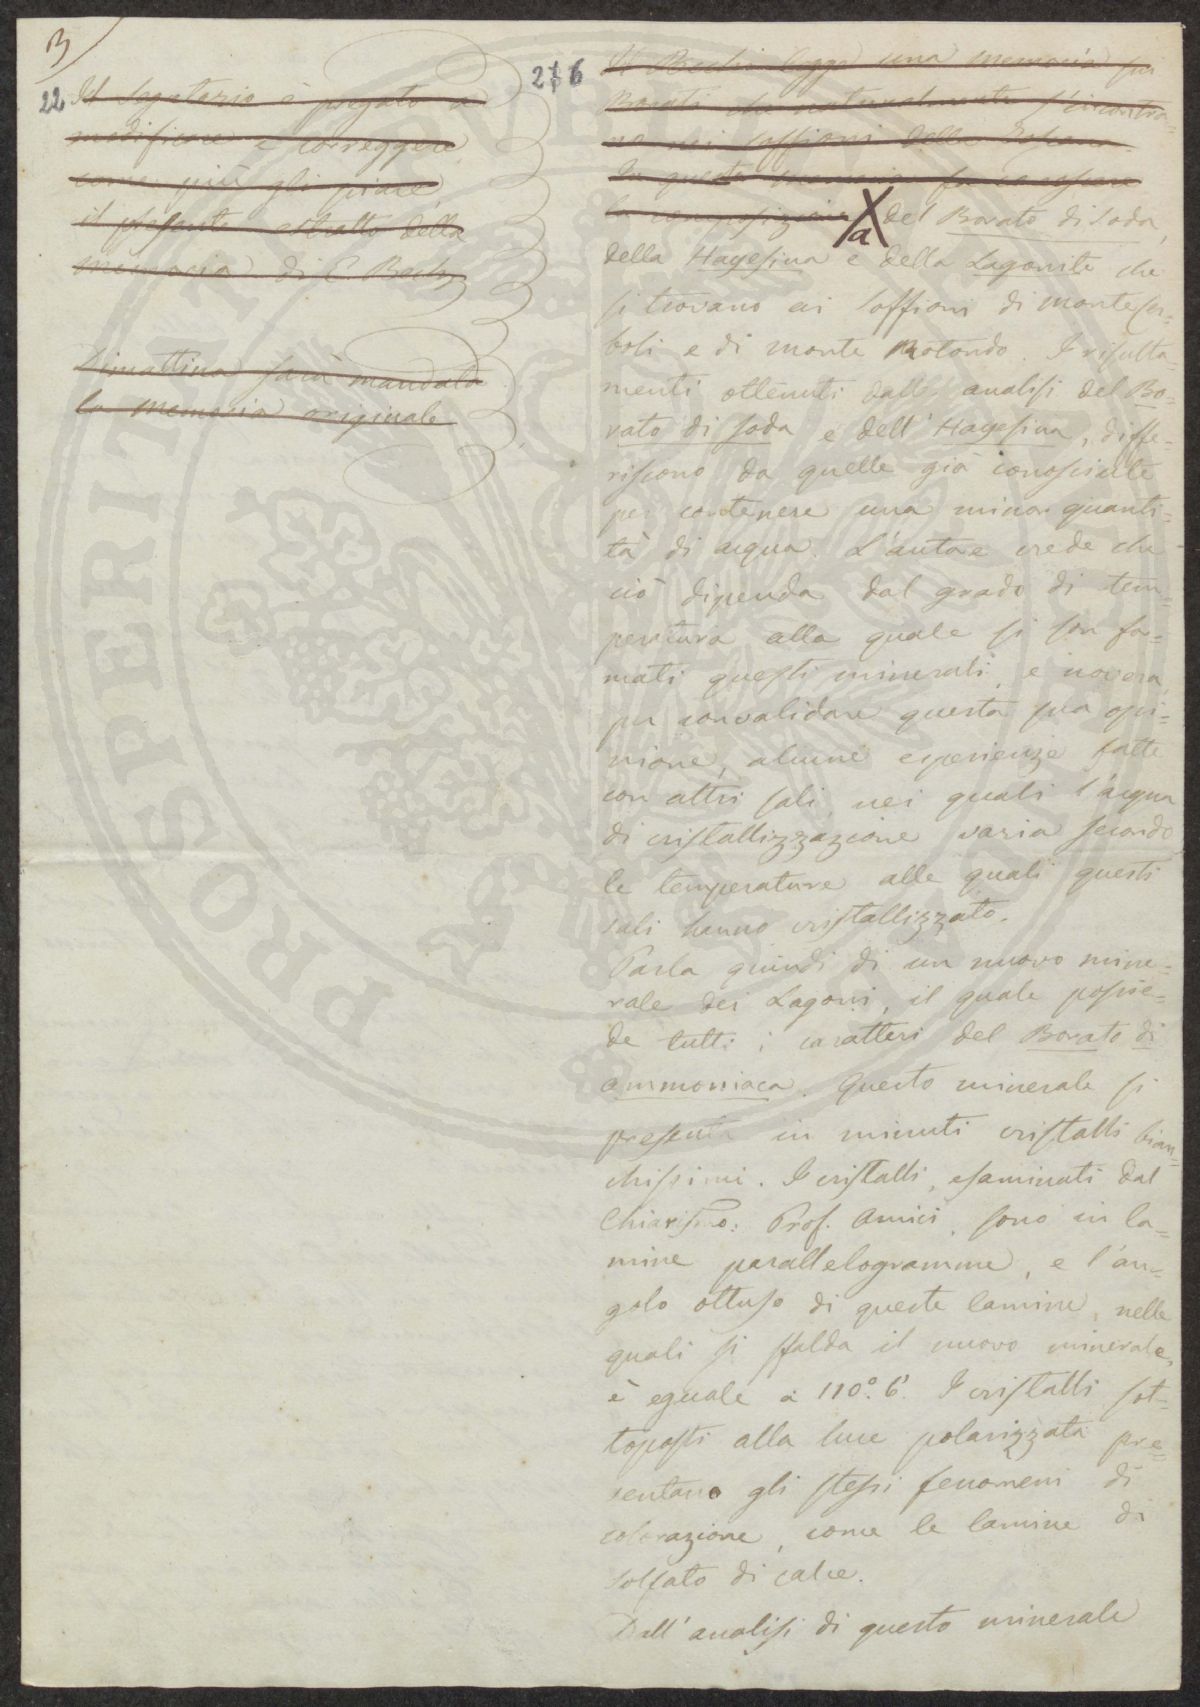 B
22
Il Segretario è pregato a
modificare e correggere,
come più gli piace,
il presente estratto della
memoria di E Bechi
Dimattina sarà mandata
la memoria originale
276
Il Bechi legge una memoria sui
Borati che naturalmente s'incontra-
no nei soffioni della Toscana.
In questa memoria fa conoscere
la composizione a del Borato di Soda,
della Hayesina e della Lagonite che
si trovano ai Soffioni di Monte Cer-
boli e di Monte Rotondo. I risulta-
menti ottenuti dall' analisi del Bo-
rato di soda e dell' Hayesina, diffe-
riscono da quelle già conosciute
per contenere una minor quanti-
tà di acqua. L'autore crede che
ciò dipenda dal grado di tem-
peratura alla quale si son for-
mati questi minerali, e novera,
per convalidare questa sua opi-
nione, alcune esperienze fatte
con altri sali, nei quali l'acqua
di cristallizzazione varia secondo
le temperature alle quali questi
sali hanno cristallizzato.
Parla quindi di un nuovo mine-
rale dei Lagoni, il quale possie-
de tutti i caratteri del Borato di
ammoniaca. Questo minerale si
presenta in minuti cristalli bian-
chissimi. I cristalli, esaminati dal
Chiarismo: Prof. Amici, sono in la-
mine parallelogramme, e l'an-
golo ottuso di queste lamine, nelle
quali si sfalda il nuovo minerale,
è eguale a 110°. 6'. I cristalli sot-
toposti alla luce polarizzata pre-
sentano gli stessi fenomeni di
colorazione, come le lamine di
solfato di calce.
Dall' analisi di questo minerale